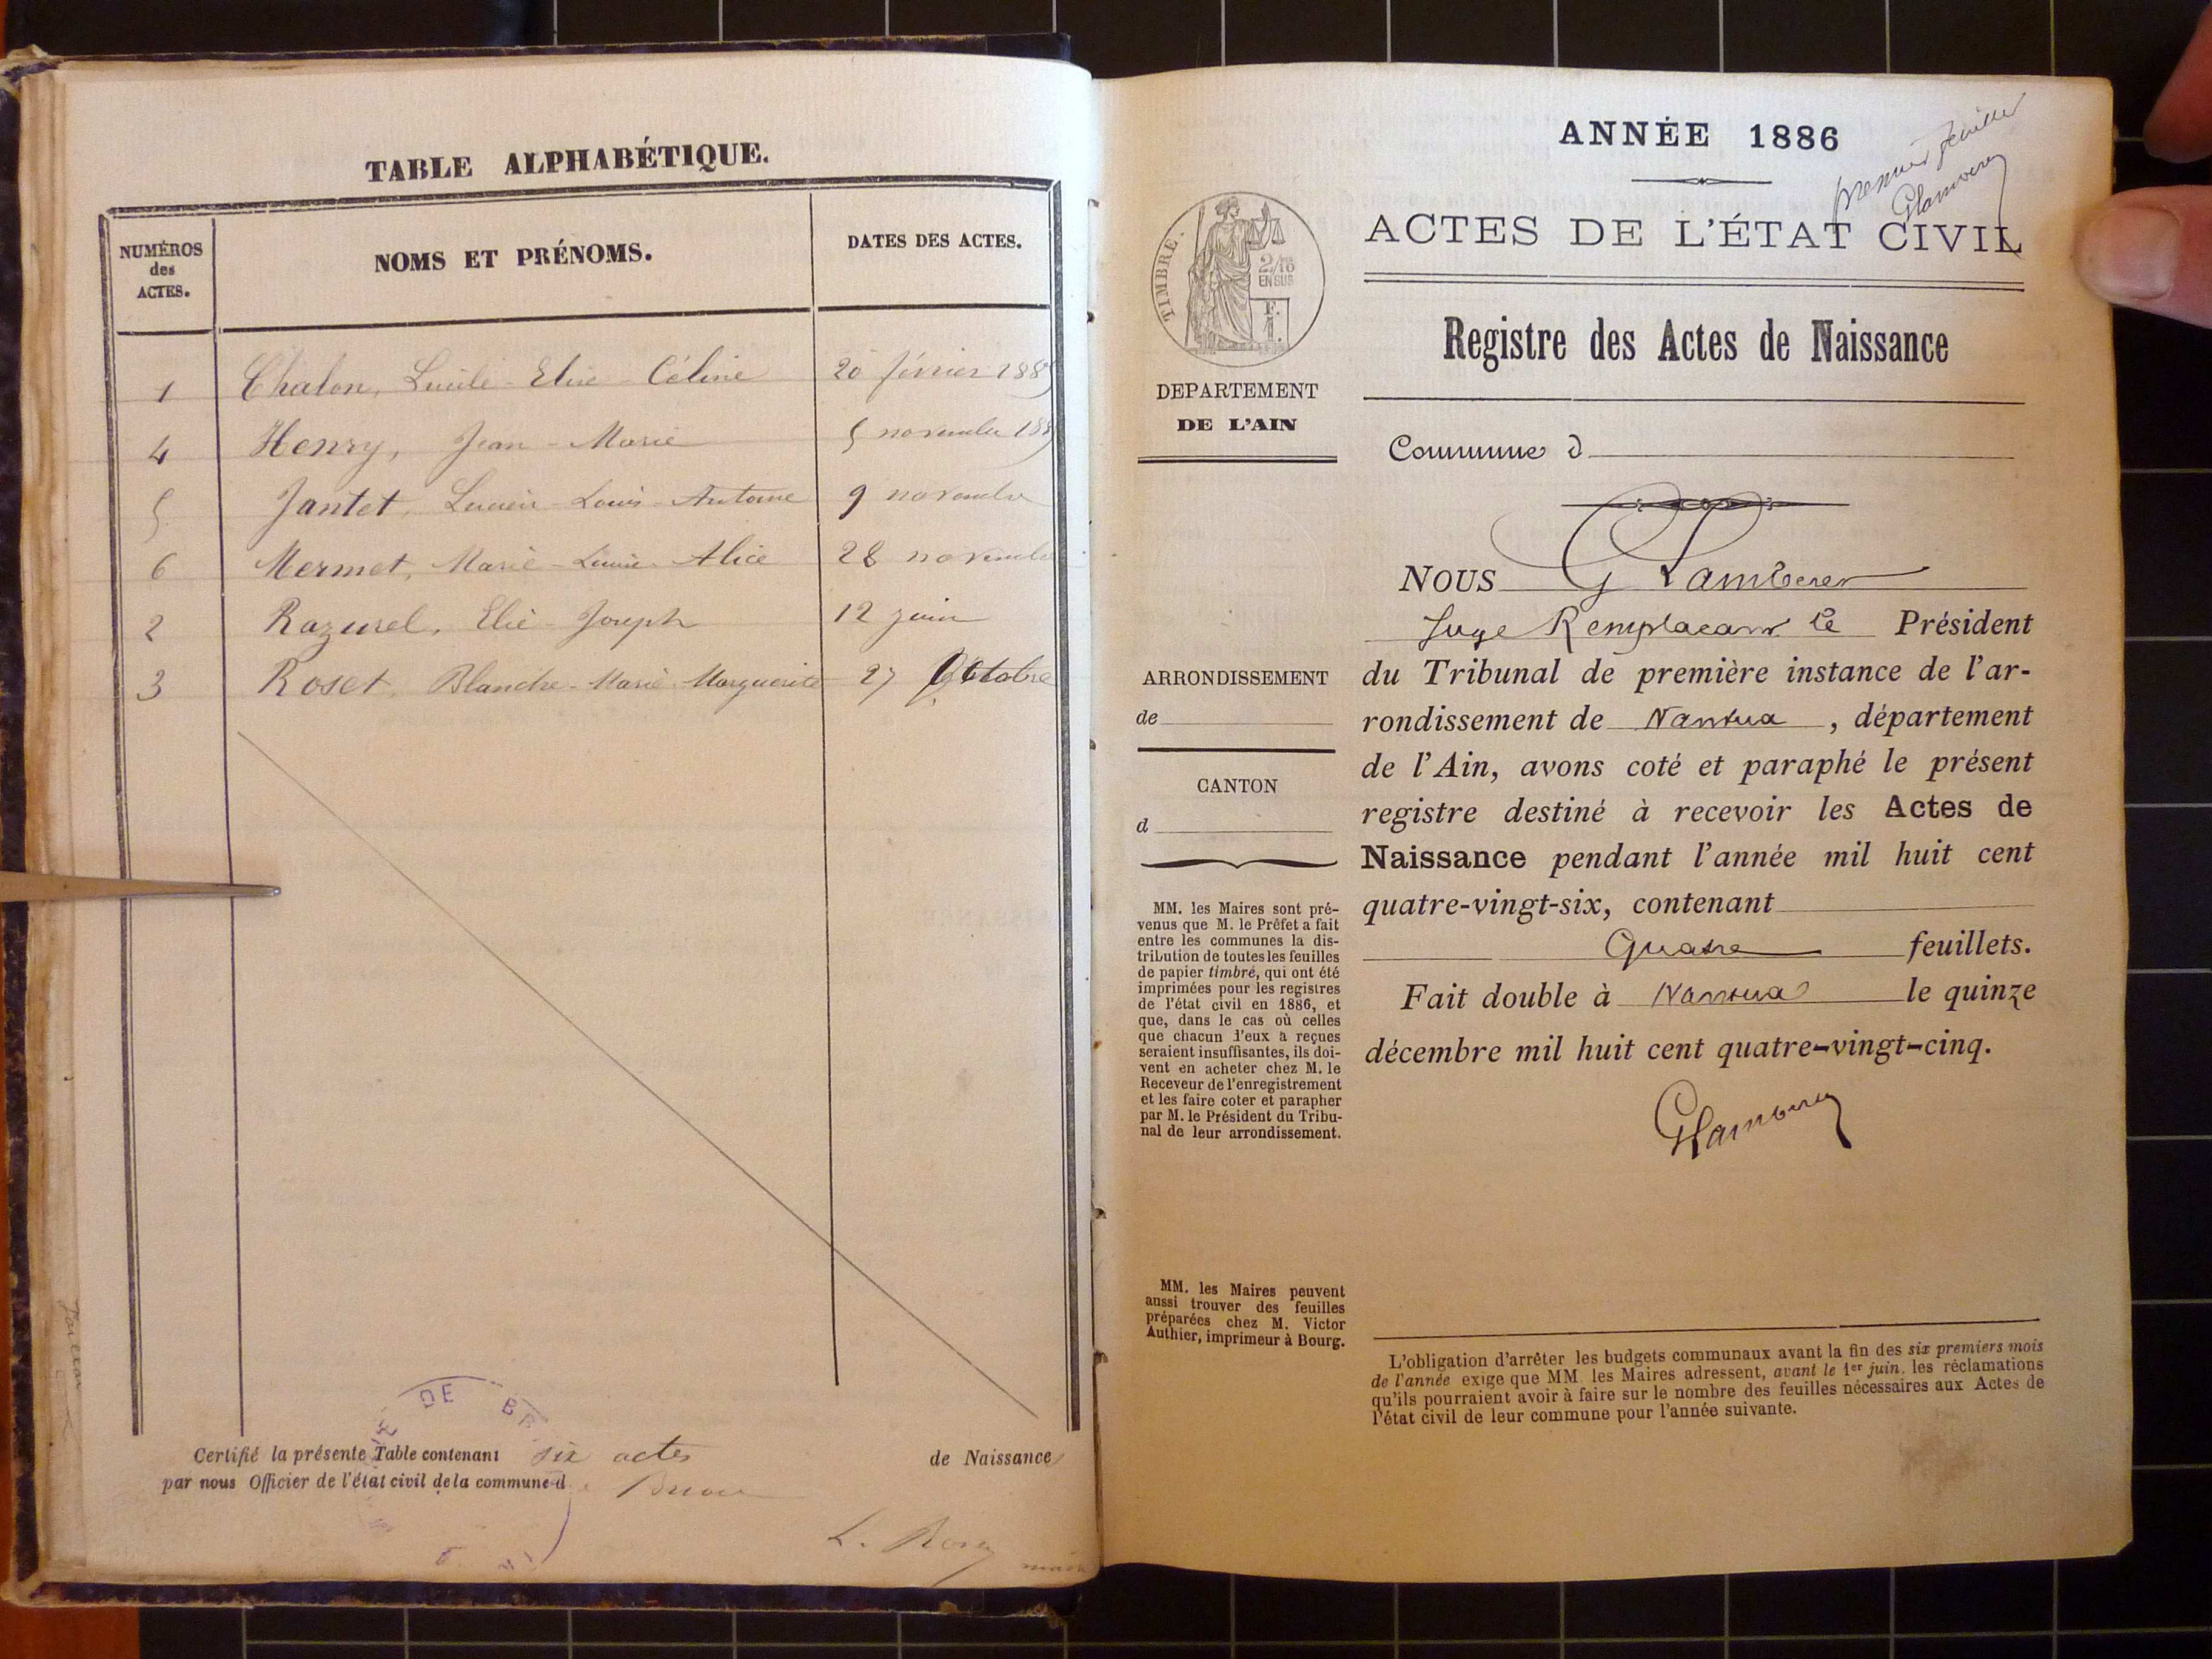 TABLE ALPHABÉTIQUE.
NUMÉROS
des
ACTES.
NOMS ET PRÉNOMS.
DATES DES ACTES.
1 Chalon, Lucile-Elise-Céline 20 février 1885
4 Henry, Jean-Marie 5 novembre 1885
5 Jantet, Lucien-Louis-Antoine 9 novembre
6 Mermet, Marie-Louise-Alice 28 novembre
2 Razurel, Elie-Joseph 12 juin
3 Roset, Blanche-Marie-Marguerite 27 Octobre
DE BR
Certifié la présente Table contenant six actes de Naissance
par nous Officier de l'état civil de la commune d
L.
maire
ANNÉE 1886
premier feuillet
ACTES DE L'ÉTAT CIVIL
TIMBRE.
2/10
EN SUS
Registre des Actes de Naissance
DEPARTEMENT
DE L'AIN
Commune d
NOUS G Lamberet
Juge Remplaçant le Président
du Tribunal de première instance de l'ar-
rondissement de Nantua, département
de l'Ain, avons coté et paraphé le présent
registre destiné à recevoir les Actes de
Naissance pendant l'année mil huit cent
quatre-vingt-six, contenant
quatre feuillets.
Fait double à Nantua le quinze
décembre mil huit cent quatre-vingt-cinq.
GLamberet
ARRONDISSEMENT
de
CANTON
d
MM. les Maires sont pré-
venus que M. le Préfet a fait
entre les communes la dis-
tribution de toutes les feuilles
de papier timbré, qui ont été
imprimées pour les registres
de l'état civil en 1886, et
que, dans le cas où celles
que chacun d'eux a reçues
seraient insuffisantes, ils doi-
vent en acheter chez M. le
Receveur de l'enregistrement
et les faire coter et parapher
par M. le Président du Tribu-
nal de leur arrondissement.
MM. les Maires peuvent
aussi trouver des feuilles
préparées chez M. Victor
Authier, imprimeur à Bourg.
L'obligation d'arrêter les budgets communaux avant la fin des six premiers mois
de l'année exige que MM. les Maires adressent, avant le 1er juin, les réclamations
qu'ils pourraient avoir à faire sur le nombre des feuilles nécessaires aux Actes de
l'état civil de leur commune pour l'année suivante.